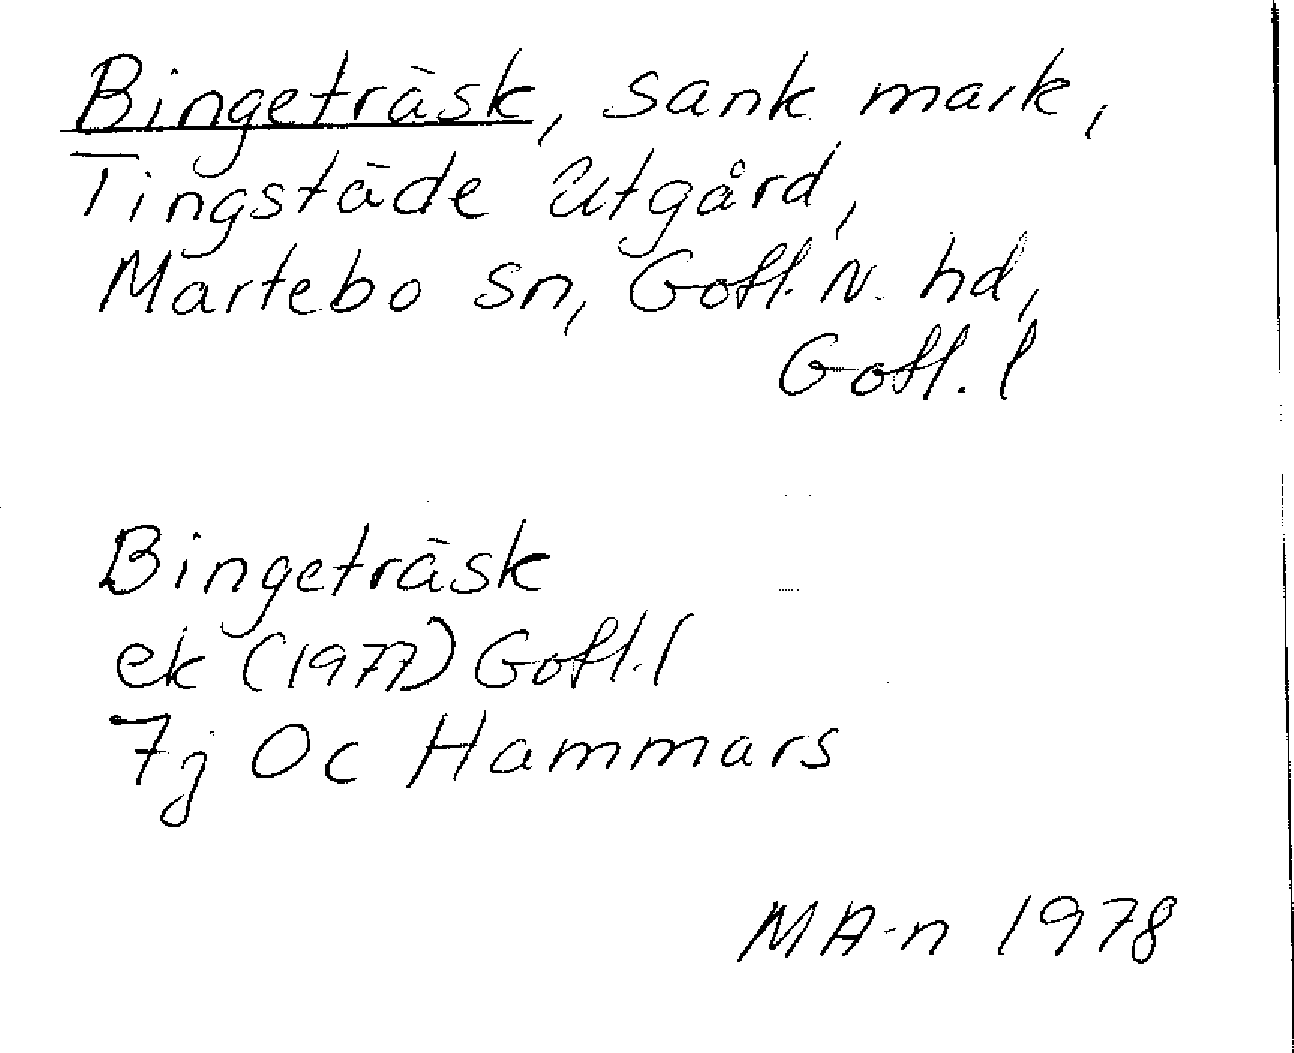 Bingeträsk, sank mark,
Tingstäde Utgård,
Martebo sn, Gotl. N. hd,
Gotl. l
Bingeträsk
ek (1977) Gotl. l
7j 0c Hammars
MA-n 1978